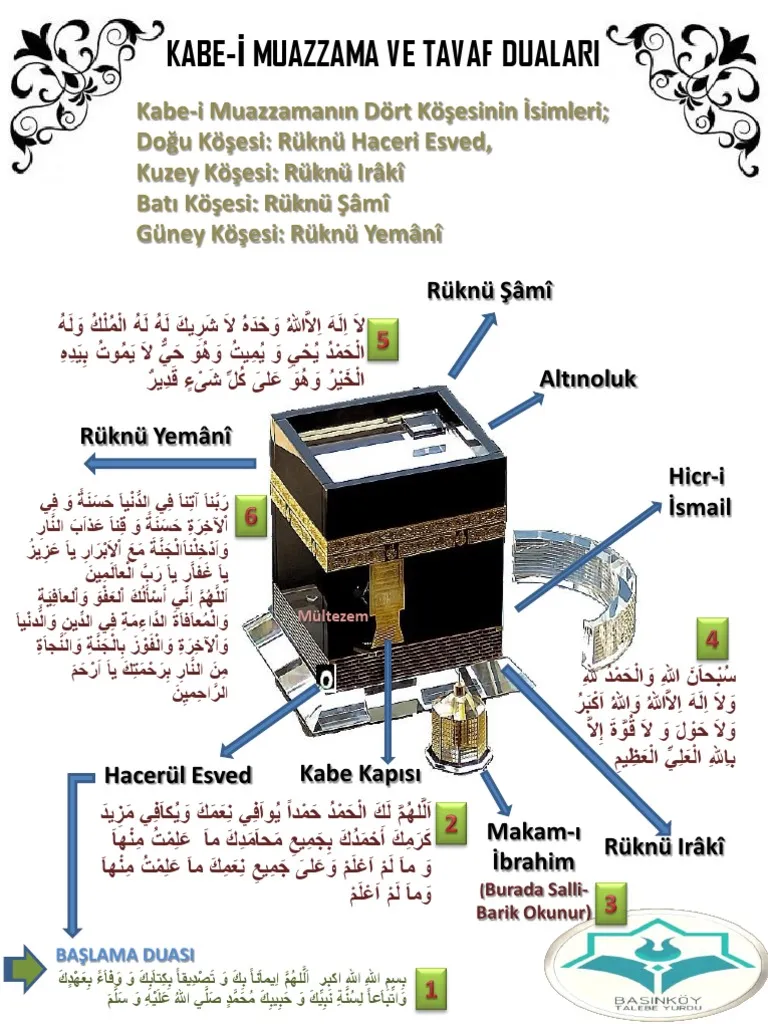 KABE-İ MUAZZAMA VE TAVAF DUALARI
Kabe-i Muazzamanın Dört Köşesinin İsimleri;
Doğu Köşesi: Rüknü Haceri Esved,
Kuzey Köşesi: Rüknü Irâkî
Batı Köşesi: Rüknü Şâmî
Güney Köşesi: Rüknü Yemânî
Rüknü Şâmî
لاَ اِلَهَ اِلاَّاللهُ وَحْدَهُ لاَ شَرِيكَ لَهُ لَهُ الْمُلْكُ وَلَهُ
الْحَمْدُ يُحْيِ وَ يُمِيتُ وَهُوَ حَيٌّ لاَ يَمُوتُ بِيَدِهِ
الْخَيْرُ وَهُوَ عَلىَ كُلِّ شَىْءٍ قَدِيرٌ
5
Altınoluk
Rüknü Yemânî
Hicr-i
İsmail
رَبَّناَ آتِناَ فِي الدُّنْياَ حَسَنَةً وَ فِي
اْلآخِرَةِ حَسَنَةً وَ قِناَ عَذاَبَ النَّارِ
وَاَدْخِلْناَالْجَنَّةَ مَعَ اْلاَبْرَارِ ياَ عَزِيزُ
ياَ غَفاَّرُ ياَ رَبَّ الْعاَلَمِينَ
اَللَّهُمَّ اِنِّي أَسْأَلُكَ اْلعَفْوَ وَاْلعاَفِيَةِ
وَالْمُعاَفاَةَ الدَّاءِمَةِ فِي الدِّينِ وَالدُّنْياَ
وَاْلآخِرَةِ وَالْفَوْزَ بِالْجَنَّةِ وَالنَّجاَةِ
مِنَ النَّارِ بِرَحْمَتِكَ ياَ اَرْحَمَ
الرَّاحِمِينَ
6
Mültezem
4
سُبْحاَنَ اللهِ وَالْحَمْدُ للهِ
وَلاَ اِلَهَ اِلاَّاللهُ وَاللهُ اَكْبَرُ
وَلاَ حَوْلَ وَ لاَ قُوَّةَ اِلاَّ
بِاللهِ الْعَلِيِّ الْعَظِيمِ
Hacerül Esved
Kabe Kapısı
اَللَّهُمَّ لَكَ الْحَمْدُ حَمْداً يُواَفِي نِعَمَكَ وَيُكاَفِي مَزِيدَ
كَرَمِكَ اَحْمَدُكَ بِجَمِيعِ مَحاَمِدِكَ ماَ عَلِمْتُ مِنْهاَ
وَ ماَ لَمْ اَعْلَمْ وَعَلىَ جَمِيعِ نِعَمِكَ ماَ عَلِمْتُ مِنْهاَ
وَماَ لَمْ اَعْلَمْ
2
Makam-ı
İbrahim
(Burada Salli-
Barik Okunur)
3
Rüknü Irâkî
BAŞLAMA DUASI
بِسمِ اللهِ اللهُ اكبر اَللَّهُمَّ اِيماَناً بِكَ وَ تَصْدِيقاً بِكِتاَبِكَ وَ وَفاَءً بِعَهْدِكَ
وَاتِّباَعاً لِسُنَّةِ نَبِيِّكَ وَ حَبِيبِكَ مُحَمَّدٍ صَلَّي اللهُ عَلَيْهِ وَ سَلَّمَ
1
BASINKÖY
TALEBE YURDU